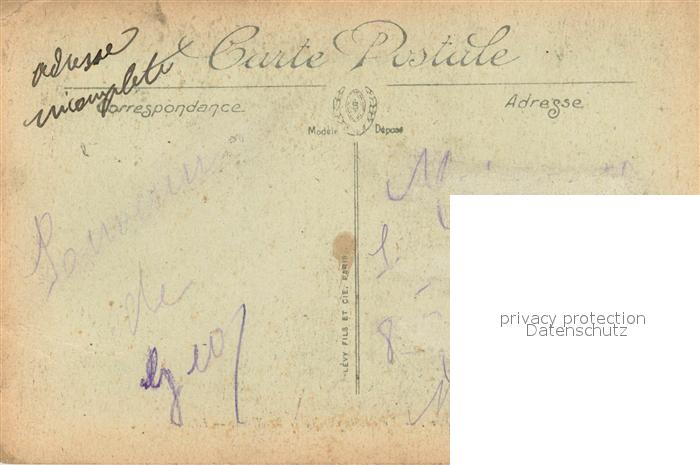 adresse
incomplete
Carte Postale
Correspondance
Adresse
Modèle Déposé
Souvenir
de
LÉVY FILS ET CIE, PARIS
privacy protection
Datenschutz